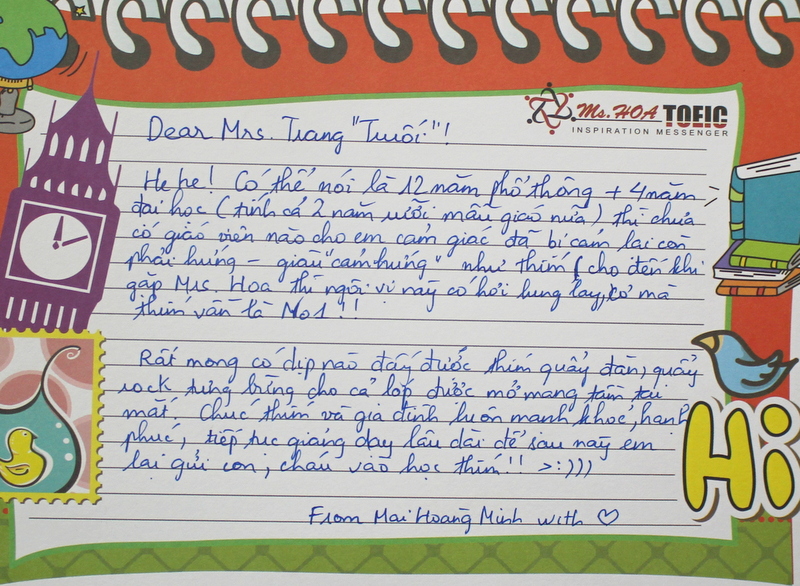 Ms. HOA TOEIC
INSPIRATION MESSENGER
Dear Mrs. Trang "Tuổi"!
He he! Có thể nói là 12 năm phổ thông + 4 năm
đại học (tính cả 2 năm rưỡi mẫu giáo nữa) thì chưa
có giáo viên nào cho em cảm giác đã bị cảm lại còn
phải hứng - giàu "cảm hứng" như thím (cho đến khi
gặp Mrs. Hoa thì ngôi vị này có hơi lung lay, cơ mà
thím vẫn là No1 !!
Rất mong có dịp nào đấy được thím quẩy đàn, quẩy
rock tưng bừng cho cả lớp được mở mang tầm tai
mắt. Chúc thím và gia đình luôn mạnh khoẻ, hạnh
phúc, tiếp tục giảng dạy lâu dài để sau này em
lại gửi con, cháu vào học thím!! >:)))
From Mai Hoàng Minh with ♡
Hi